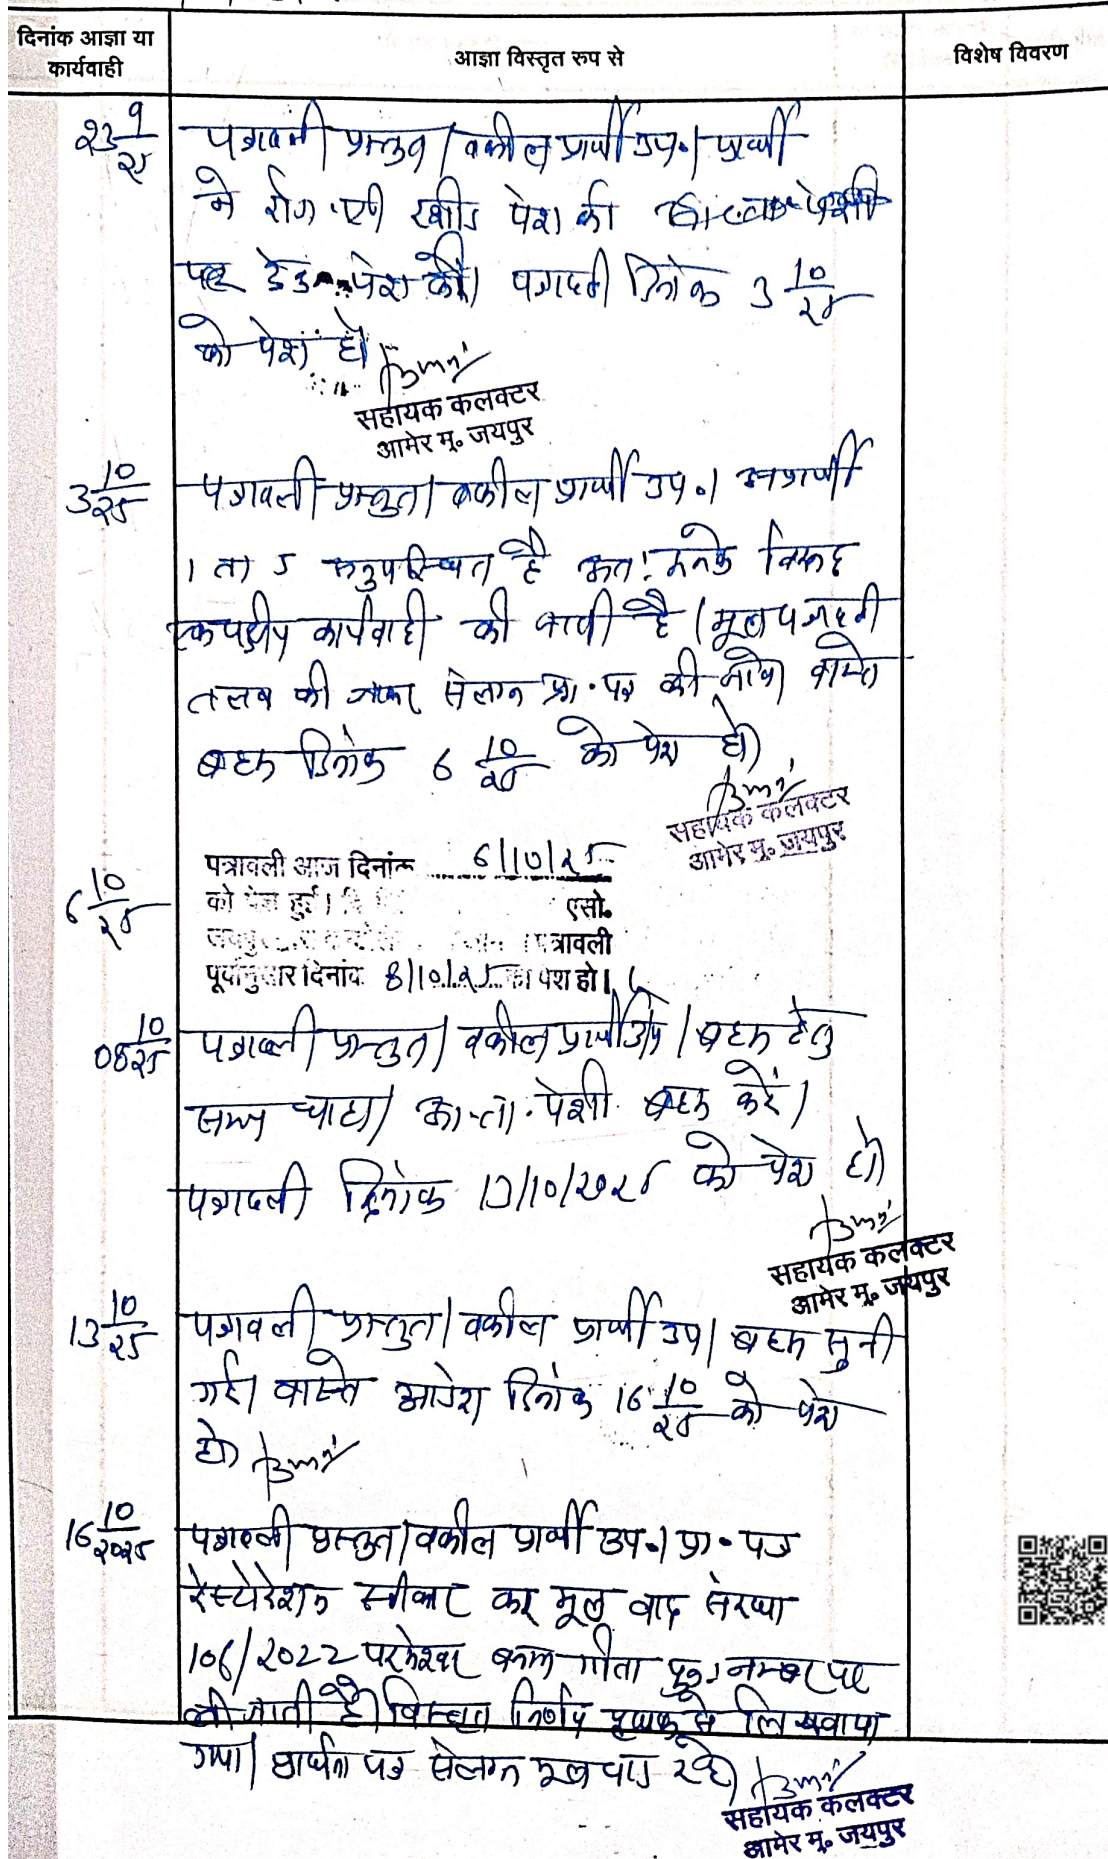 दिनांक आज्ञा या
कार्यवाही
आज्ञा विस्तृत रूप से
विशेष विवरण
23 9/25
पत्रावली प्रस्तुत। वकील प्रार्थी उप.। प्रार्थी
ने रजि. ए.डी रसीद पेश की
पेश की। पत्रावली दिनांक 3 10/25
को पेश हो
सहायक कलक्टर
आमेर मु० जयपुर
3 10/25
पत्रावली प्रस्तुत। वकील प्रार्थी उप.। अप्रार्थी
1 ता 5 अनुपस्थित है अतः इनके विरूद्ध
एकपक्षीय कार्यवाही की जाती है। मूल पत्रावली
तलब की जाकर संलग्न प्रा. पत्र की जावे। वास्ते
बहस दिनांक 6 10/25 को पेश हो।
सहायक कलक्टर
आमेर मु० जयपुर
6 10/25
पत्रावली आज दिनांक 6/10/25
को पेश हुई। एसो.
पत्रावली
पूर्वानुसार दिनांक 8/10/25 को पेश हो।
08 10/25
पत्रावली प्रस्तुत। वकील प्रार्थी उप। बहस हेतु
समय चाहा। आ.ता. पेशी बहस करें।
पत्रावली दिनांक 13/10/2025 को पेश हो।
सहायक कलक्टर
आमेर मु० जयपुर
13 10/25
पत्रावली प्रस्तुत। वकील प्रार्थी उप। बहस सुनी
गई। वास्ते आदेश दिनांक 16 10/25 को पेश
हो
16 10/2025
पत्रावली प्रस्तुत। वकील प्रार्थी उप.। प्रा. पत्र
रेस्टोरेशन स्वीकार कर मूल वाद संख्या
106/2022 परमेश्वर बनाम गीता पुनः नम्बर पर
ली जाती है। विस्तृत निर्णय पृथक से लिखवाया
गया। प्रार्थना पत्र संलग्न मूल वाद रहे।
सहायक कलक्टर
आमेर मु० जयपुर